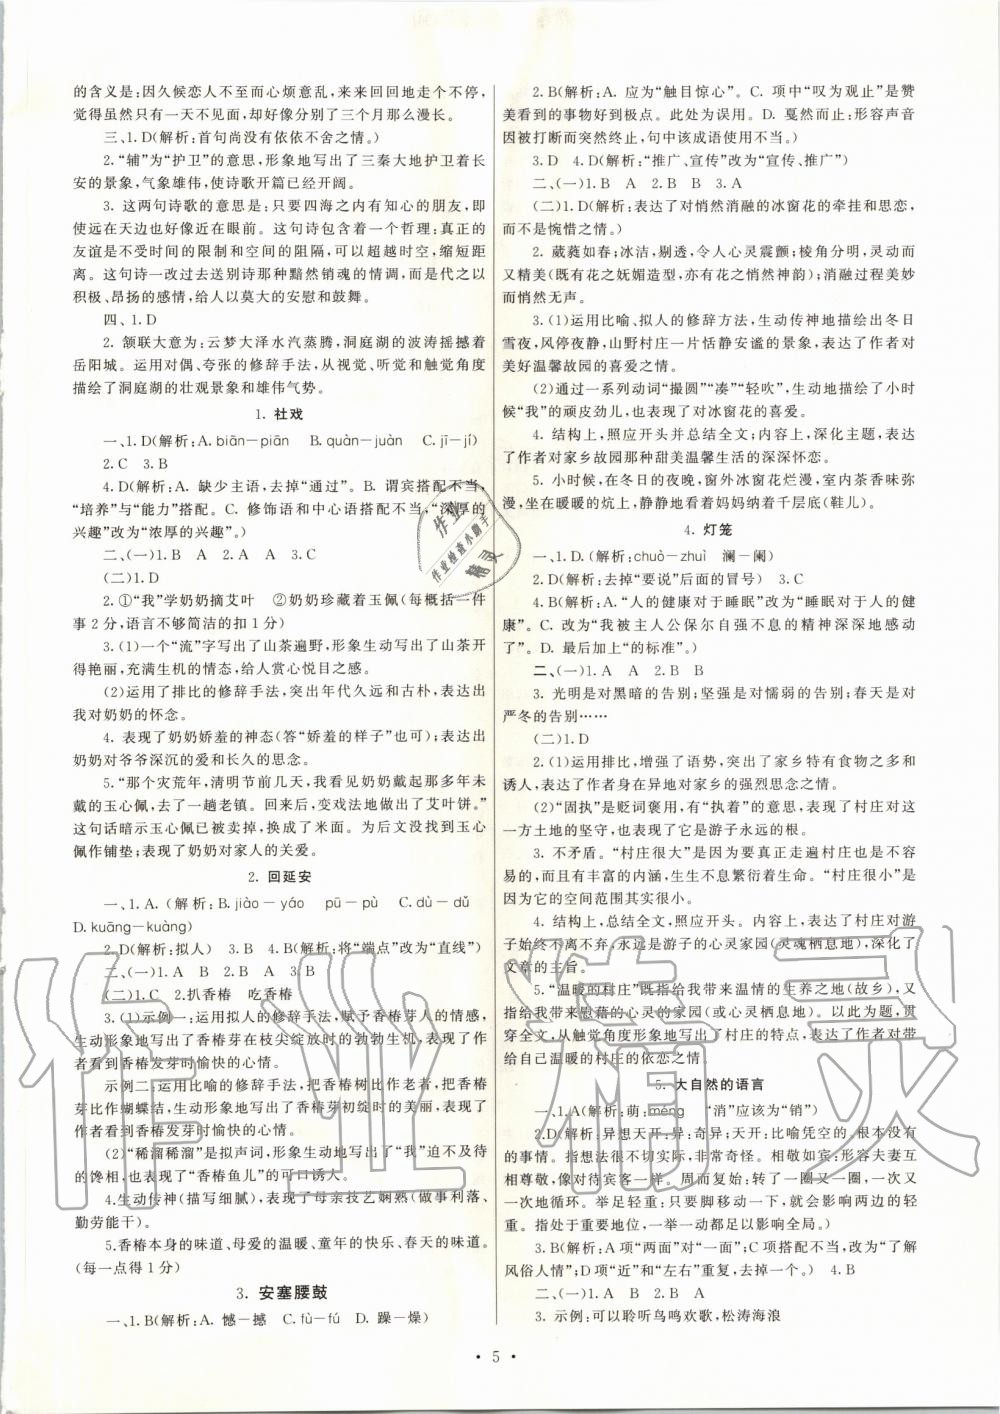 的含义是:因久候恋人不至而心烦意乱,来来回回地走个不停,
觉得虽然只有一天不见面,却好像分别了三个月那么漫长。
三、1. D(解析:首句尚没有依依不舍之情。)
2.“辅”为“护卫”的意思,形象地写出了三秦大地护卫着长
安的景象,气象雄伟,使诗歌开篇已经开阔。
3. 这两句诗歌的意思是:只要四海之内有知心的朋友,即
使远在天边也好像近在眼前。这句诗包含着一个哲理:真正的
友谊是不受时间的限制和空间的阻隔,可以超越时空,缩短距
离。这句诗一改过去送别诗的黯然销魂的情调,而是代之以
积极、昂扬的感情,给人以莫大的安慰和鼓舞。
四、1. D
2. 颔联大意为:云梦大泽水汽蒸腾,洞庭湖的波涛摇撼着
岳阳城。运用对偶、夸张的修辞手法,从视觉、听觉和触觉角度
描绘了洞庭湖的壮观景象和雄伟气势。
1. 社戏
一、1. D(解析:A. biān－piān　B. quàn－juàn　C. jī－jí)
2. C　3. B
4. D(解析:A. 缺少主语,去掉“通过”。B. 谓宾搭配不当,
“培养”与“能力”搭配。C. 修饰语和中心语搭配不当,“深厚的
兴趣”改为“浓厚的兴趣”。)
二、(一)1. B　A　2. A　3. C
(二)1. D
2. ①“我”学奶奶摘艾叶　②奶奶珍藏着玉佩(每概括一件
事 2 分,语言不够简洁的扣 1 分)
3. (1)一个“流”字写出了山茶遍野,形象生动地写出了山茶开
得艳丽,充满生机的情态,给人赏心悦目之感。
(2)运用了排比的修辞手法,突出年代久远和古朴,表达出
我对奶奶的怀念。
4. 表现了奶奶娇羞的神态(答“娇羞的样子”也可);表达出
奶奶对爷爷深沉的爱和长久的思念。
5.“那个灾荒年,清明节前几天,我看见奶奶戴起那多年未
戴的玉心佩,去了一趟老镇。回来后,变戏法地做出了艾叶饼。”
这句话暗示玉心佩已被卖掉,换成了米面。为后文没找到玉心
佩作铺垫;表现了奶奶对家人的关爱。
2. 回延安
一、1. A. (解析:B. jiào－yáo　pū－pù　C. dù－dǔ
D. kuāng－kuàng)
2. D(解析:拟人)　3. B　4. B(解析:将“端点”改为“直线”)
二、(一)1. A　B　2. A　3. B　B
(二)1. C　2. 扒香椿　吃香椿
3. (1)示例一:运用拟人的修辞手法,赋予香椿芽人的情感,
生动形象地写出了香椿芽在枝尖绽放时的勃勃生机,表现出作
者看到香椿发芽时愉快的心情。
示例二:运用比喻的修辞手法,把香椿树比作老者,把香椿
芽比作蝴蝶结,生动形象地写出了香椿芽初绽时的美丽,表现了
作者看到香椿发芽时愉快的心情。
(2)“稀溜稀溜”是拟声词,生动形象地写出了“我”迫不及待
的馋相,也表现了“香椿鱼儿”的可口诱人。
4. 生动传神(描写细腻),表现了母亲技艺娴熟(做事利落、
勤劳能干)。
5. 香椿本身的味道、母爱的温暖、童年的快乐、春天的味道。
(每一点得 1 分)
3. 安塞腰鼓
一、1. B(解析:A. 憾－撼　C. fù－fú　D. 躁－燥)
2. B(解析:A. 应为“触目惊心”。C. 项中“叹为观止”是赞
美看到的事物好到极点。此处为误用。D. 戛然而止:形容声音
因被打断而突然终止,句中该成语使用不当。)
3. D　4. D(解析:“推广、宣传”改为“宣传、推广”)
二、(一)1. B　A　2. B　3. A
(二)1. D(解析:表达了对悄然消融的冰窗花的牵挂和思恋,
而不是惋惜之情。)
2. 葳蕤如春:冰洁,剔透,令人心灵震颤;棱角分明,灵动而
又精美(既有花之妩媚造型,亦有花之悄然神韵);消融过程美妙
而悄然无声。
3. (1)运用比喻、拟人的修辞方法,生动传神地描绘出冬日
雪夜,风停夜静,山野村庄一片恬静安谧的景象,表达了作者对
美好温馨故园的思恋之情。
(2)通过一系列动词“撮圆”“凑”“轻吹”,生动地描绘了小时
候“我”的顽皮劲儿,也表现了对冰窗花的喜爱。
4. 结构上,照应开头并总结全文;内容上,深化主题,表达
了作者对家乡故园那种甜美温馨生活的深深怀恋。
5. 小时候,在晚上,窗外冰窗花烂漫,室内茶香味弥
漫,坐在暖暖的炕上,静静地看着妈妈纳着千层底(鞋儿)。
4. 灯笼
一、1. D. (解析:chuò－zhuì　澜－阑)
2. D(解析:去掉“要说”后面的冒号)　3. C
4. B(解析:A.“人的健康对于睡眠”改为“睡眠对于人的健
康”。C. 改为“我被主人公保尔自强不息的精神深深地感动
了”。D. 最后加上“的标准”。)
二、(一)1. A　A　2. B　B
3. 光明是对黑暗的告别;坚强是对懦弱的告别;春天是对
严冬的告别……
(二)1. D
2. (1)运用排比,增强了语势,突出了家乡特有食物之多和
诱人,表达了作者身在异地对家乡的强烈思恋之情。
(2)“固执”是贬词褒用,有“执着”的意思,表现了村庄对这
一方土地的坚守,也表现了它是游子永远的根。
3. 不矛盾。“村庄很大”是因为要真正走遍村庄是很不容
易的,而且有丰富的内涵,生生不息繁衍着生命。“村庄很小”是
因为它的空间范围其实很小。
4. 结构上,总结全文,照应开头。内容上,表现了村庄对游
子始终不离不弃,永远是游子的心灵家园(灵魂栖息地),深化了
文章的主旨。
5.“温暖的村庄”既指给我带来温情的生养之地(故乡),又
指给我带来慰藉的心灵的家园(或心灵栖息地)。以此为题,贯
穿全文,从触觉角度形象地写出了村庄的特点,表达了作者对带
给自己温暖的村庄的依恋之情。
5. 大自然的语言
一、1. A(解析:萌:méng　“消”应该为“销”)
2. D(解析:异想天开:异:奇异;天开:比喻凭空的、根本没有
的事情。指想法很不切实际,非常奇怪。相敬如宾:形容夫妻互
相尊敬,像对待宾客一样。周而复始:转了一圈又一圈,一次又
一次地循环。举足轻重:只要脚移动一下,就会影响两边的轻
重。指处于重要地位,一举一动都足以影响全局。)
3. B(解析:A 项“两面”对“一面”;C 项搭配不当,改为“了解
风俗人情”;D 项“近”和“左右”重复,去掉一个。)　4. B
二、(一)1. A　B　2. B
3. 示例:可以聆听鸟鸣欢歌,松涛海浪
• 5 •
作业
作业检查小助手
精灵
作业精灵